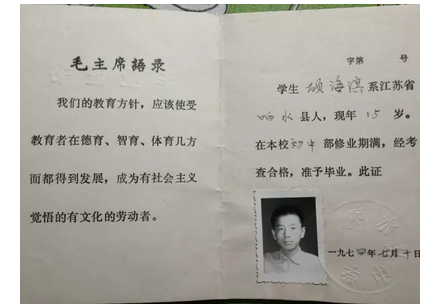 毛主席語录
我们的教育方针，应该使受
教育者在德育、智育、体育几方
面都得到发展，成为有社会主义
觉悟的有文化的劳动者。
字第 号
学生 硕海滨 系江苏省
响水 县人，现年 15 岁。
在本校 初中 部修业期满，经考
查合格，准予毕业。此证
一九七四年七月十日